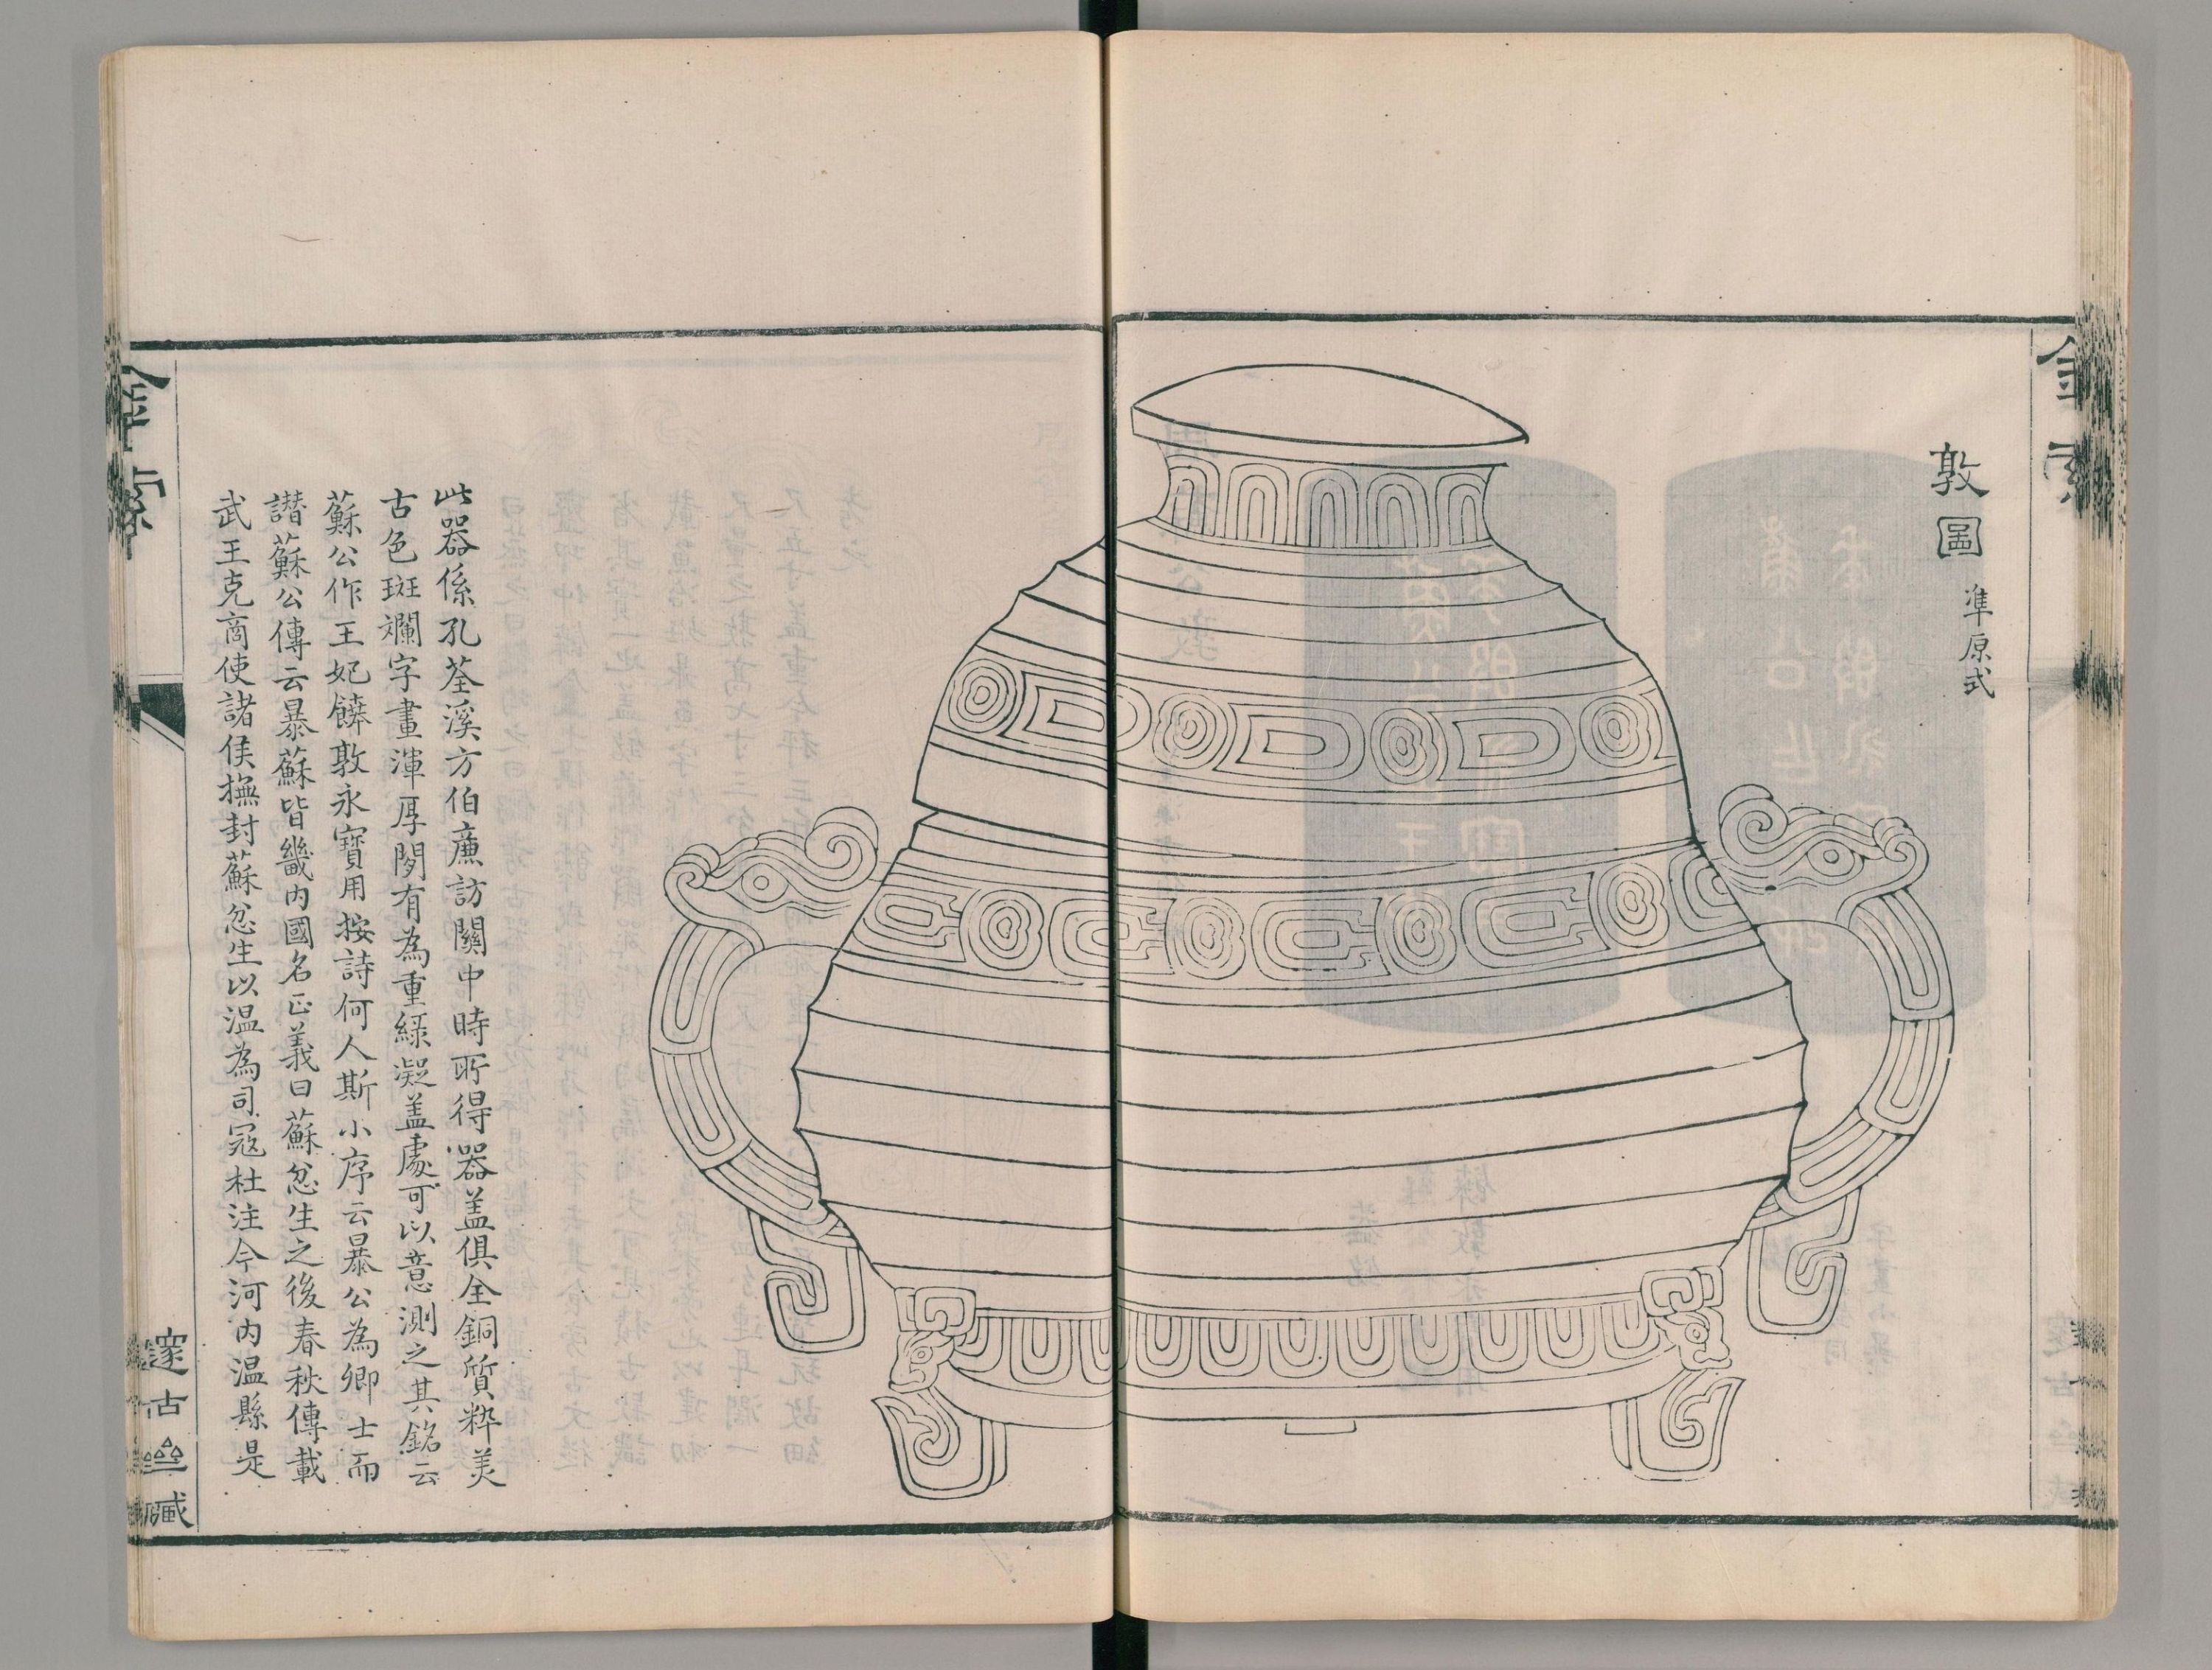 金索
敦圖 準原式
此器係孔荃溪方伯廉訪關中時所得器蓋俱全銅質粹美
古色斑斕字畫渾厚閒有為重綠凝蓋處可以意測之其銘云
蘇公作王妃饙敦永寶用按詩何人斯小序云暴公為卿士而
譖蘇公傳云暴蘇皆畿內國名正義曰蘇忿生之後春秋傳載
武王克商使諸侯撫封蘇忿生以温為司寇杜注今河內温縣是
金索
邃古齋藏